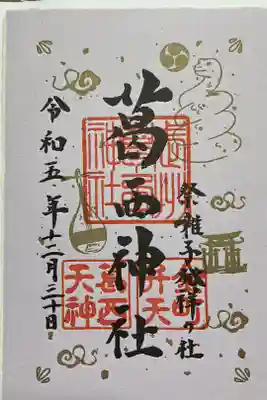 祭雅子発祥ヶ社
葛西神社
令和五年十二月三十日
葛西
天神
弁天